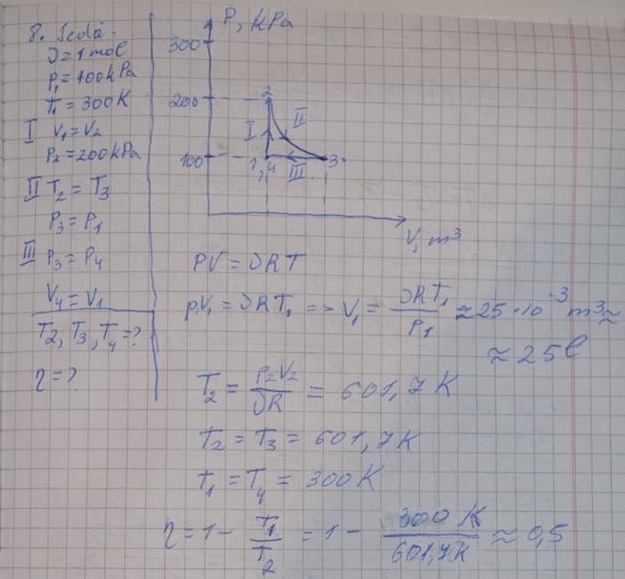 8. Se dă:
ν = 1 mol
P₁ = 100 kPa
T₁ = 300 K
I V₁ = V₂
P₂ = 200 kPa
II T₂ = T₃
P₃ = P₁
III P₃ = P₄
V₄ = V₁
T₂, T₃, T₄ = ?
η = ?
P, kPa
300
200
100
2
I
II
III
1,4
3
V, m³
PV = νRT
p₁V₁ = νRT₁ => V₁ = νRT₁/P₁ ≈ 25 · 10⁻³ m³ ≈
≈ 25 l
T₂ = P₂V₂/νR = 601,7 K
T₂ = T₃ = 601,7 K
T₁ = T₄ = 300 K
η = 1 - T₁/T₂ = 1 - 300 K/601,7 K ≈ 0,5